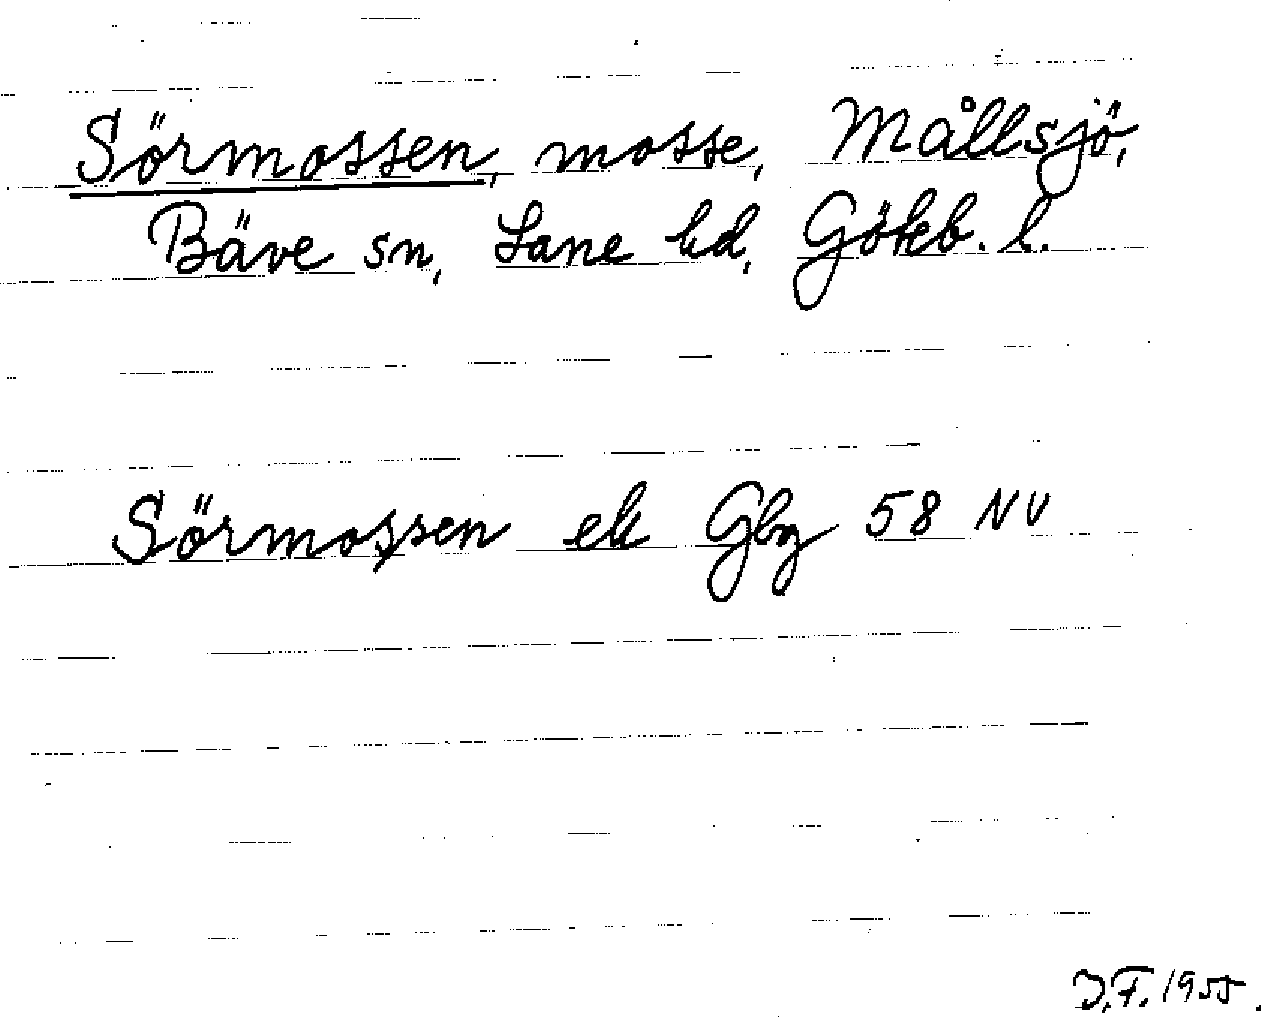 Sörmossen, mosse, Mållsjö,
Bäve sn, Lane hd, Göteb. l.
Sörmossen ek Gbg 58 NV
J.F. 1955.